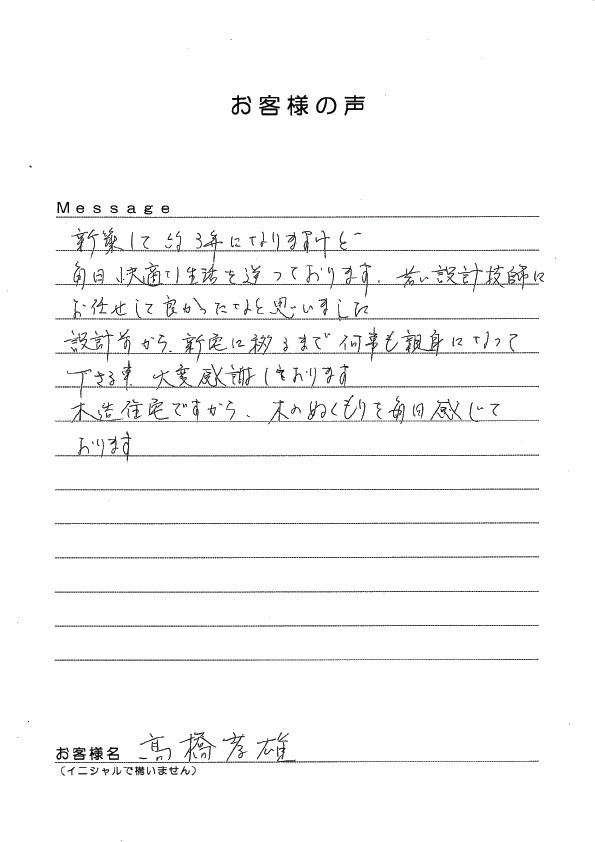 お客様の声
Message
新築して約3年になりますけど
毎日快適な生活を送っております。若い設計技師に
お任せして良かったなと思いました
設計前から、新宅に移るまで何事も親身になって
下さる事、大変感謝しております
木造住宅ですから、木のぬくもりを毎日感じて
おります
お客様名 高橋孝雄
（イニシャルで構いません）